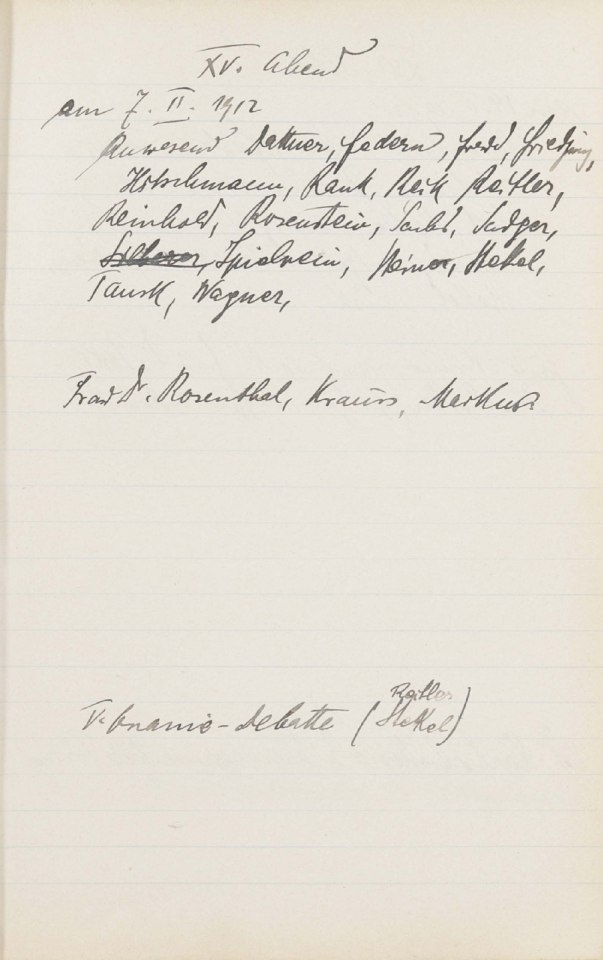 XV. Abend
am 7. II. 1912
Anwesend Dattner, Federn, Freud, Friedjung,
Hitschmann, Rank, Reik Reitler,
Reinhold, Rosenstein, Sachs, Sadger,
Silberer, Spielrein, Steiner, Stekel,
Tausk, Wagner,
Frau Dr. Rosenthal, Krauss, Markus
V. Onanie-Debatte (Stekel)
Reitler